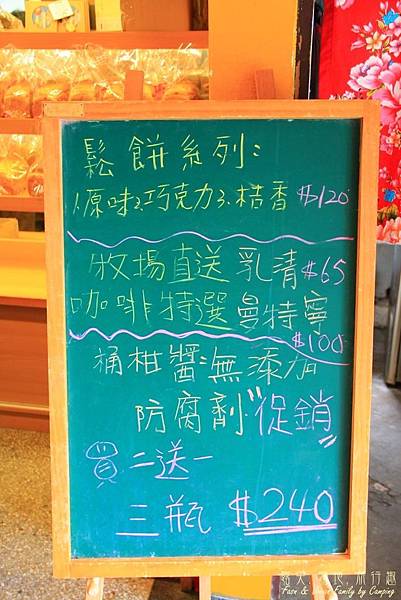 鬆餅系列:
原味、巧克力、桔香 $120
牧場直送乳清$65
咖啡特選曼特寧
$100
桶柑醬:無添加
防腐劑"促銷"
買二送一
三瓶 $240
旅行趣
Family by Camping